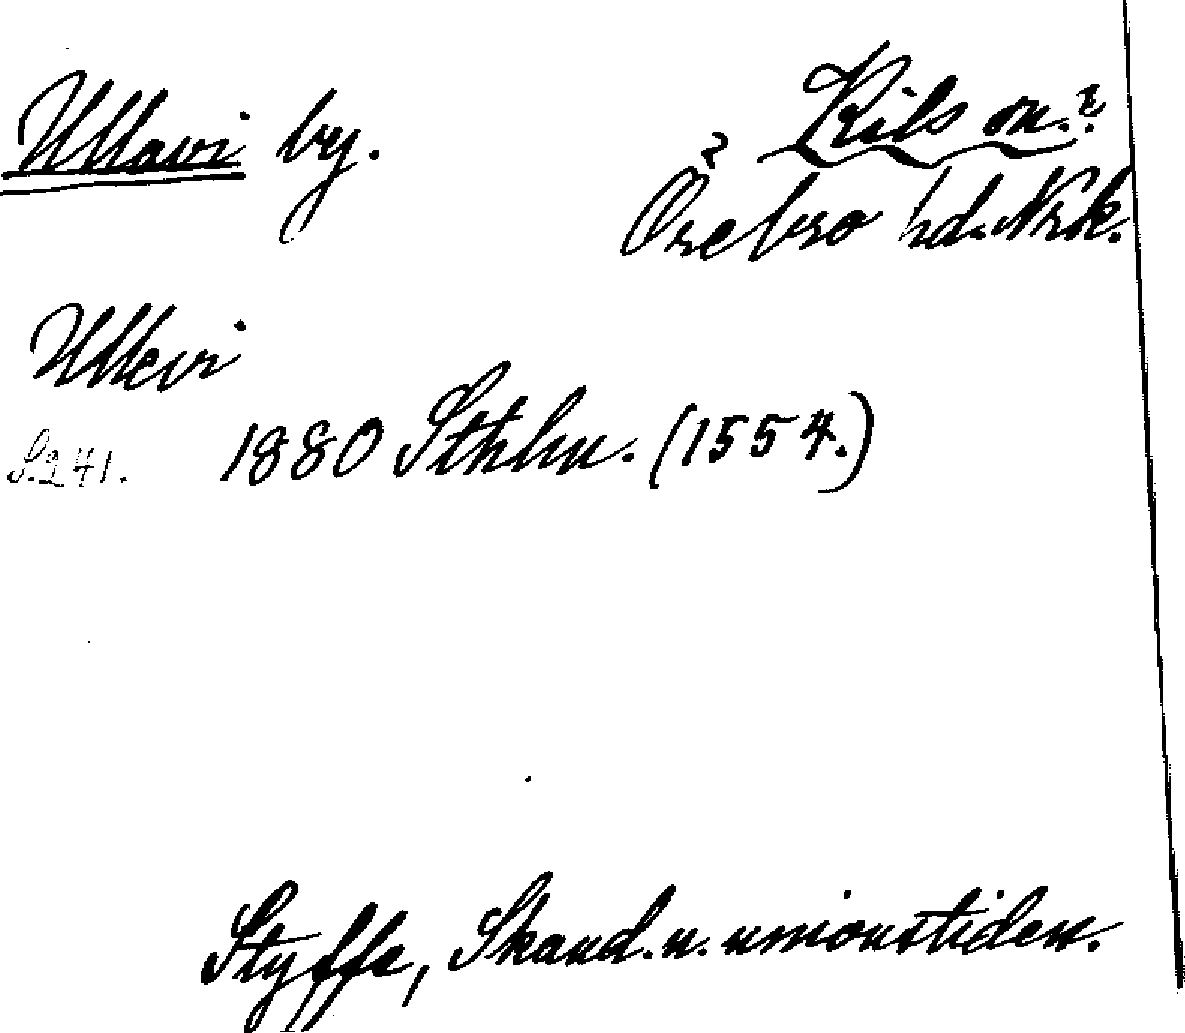 Ullavi by.
Kils sn.?
? Örebro hd. Nrk.
Ullevi
S. 241. 1880 Sthlm. (1554.)
Styffe, Skand. u. unionstiden.